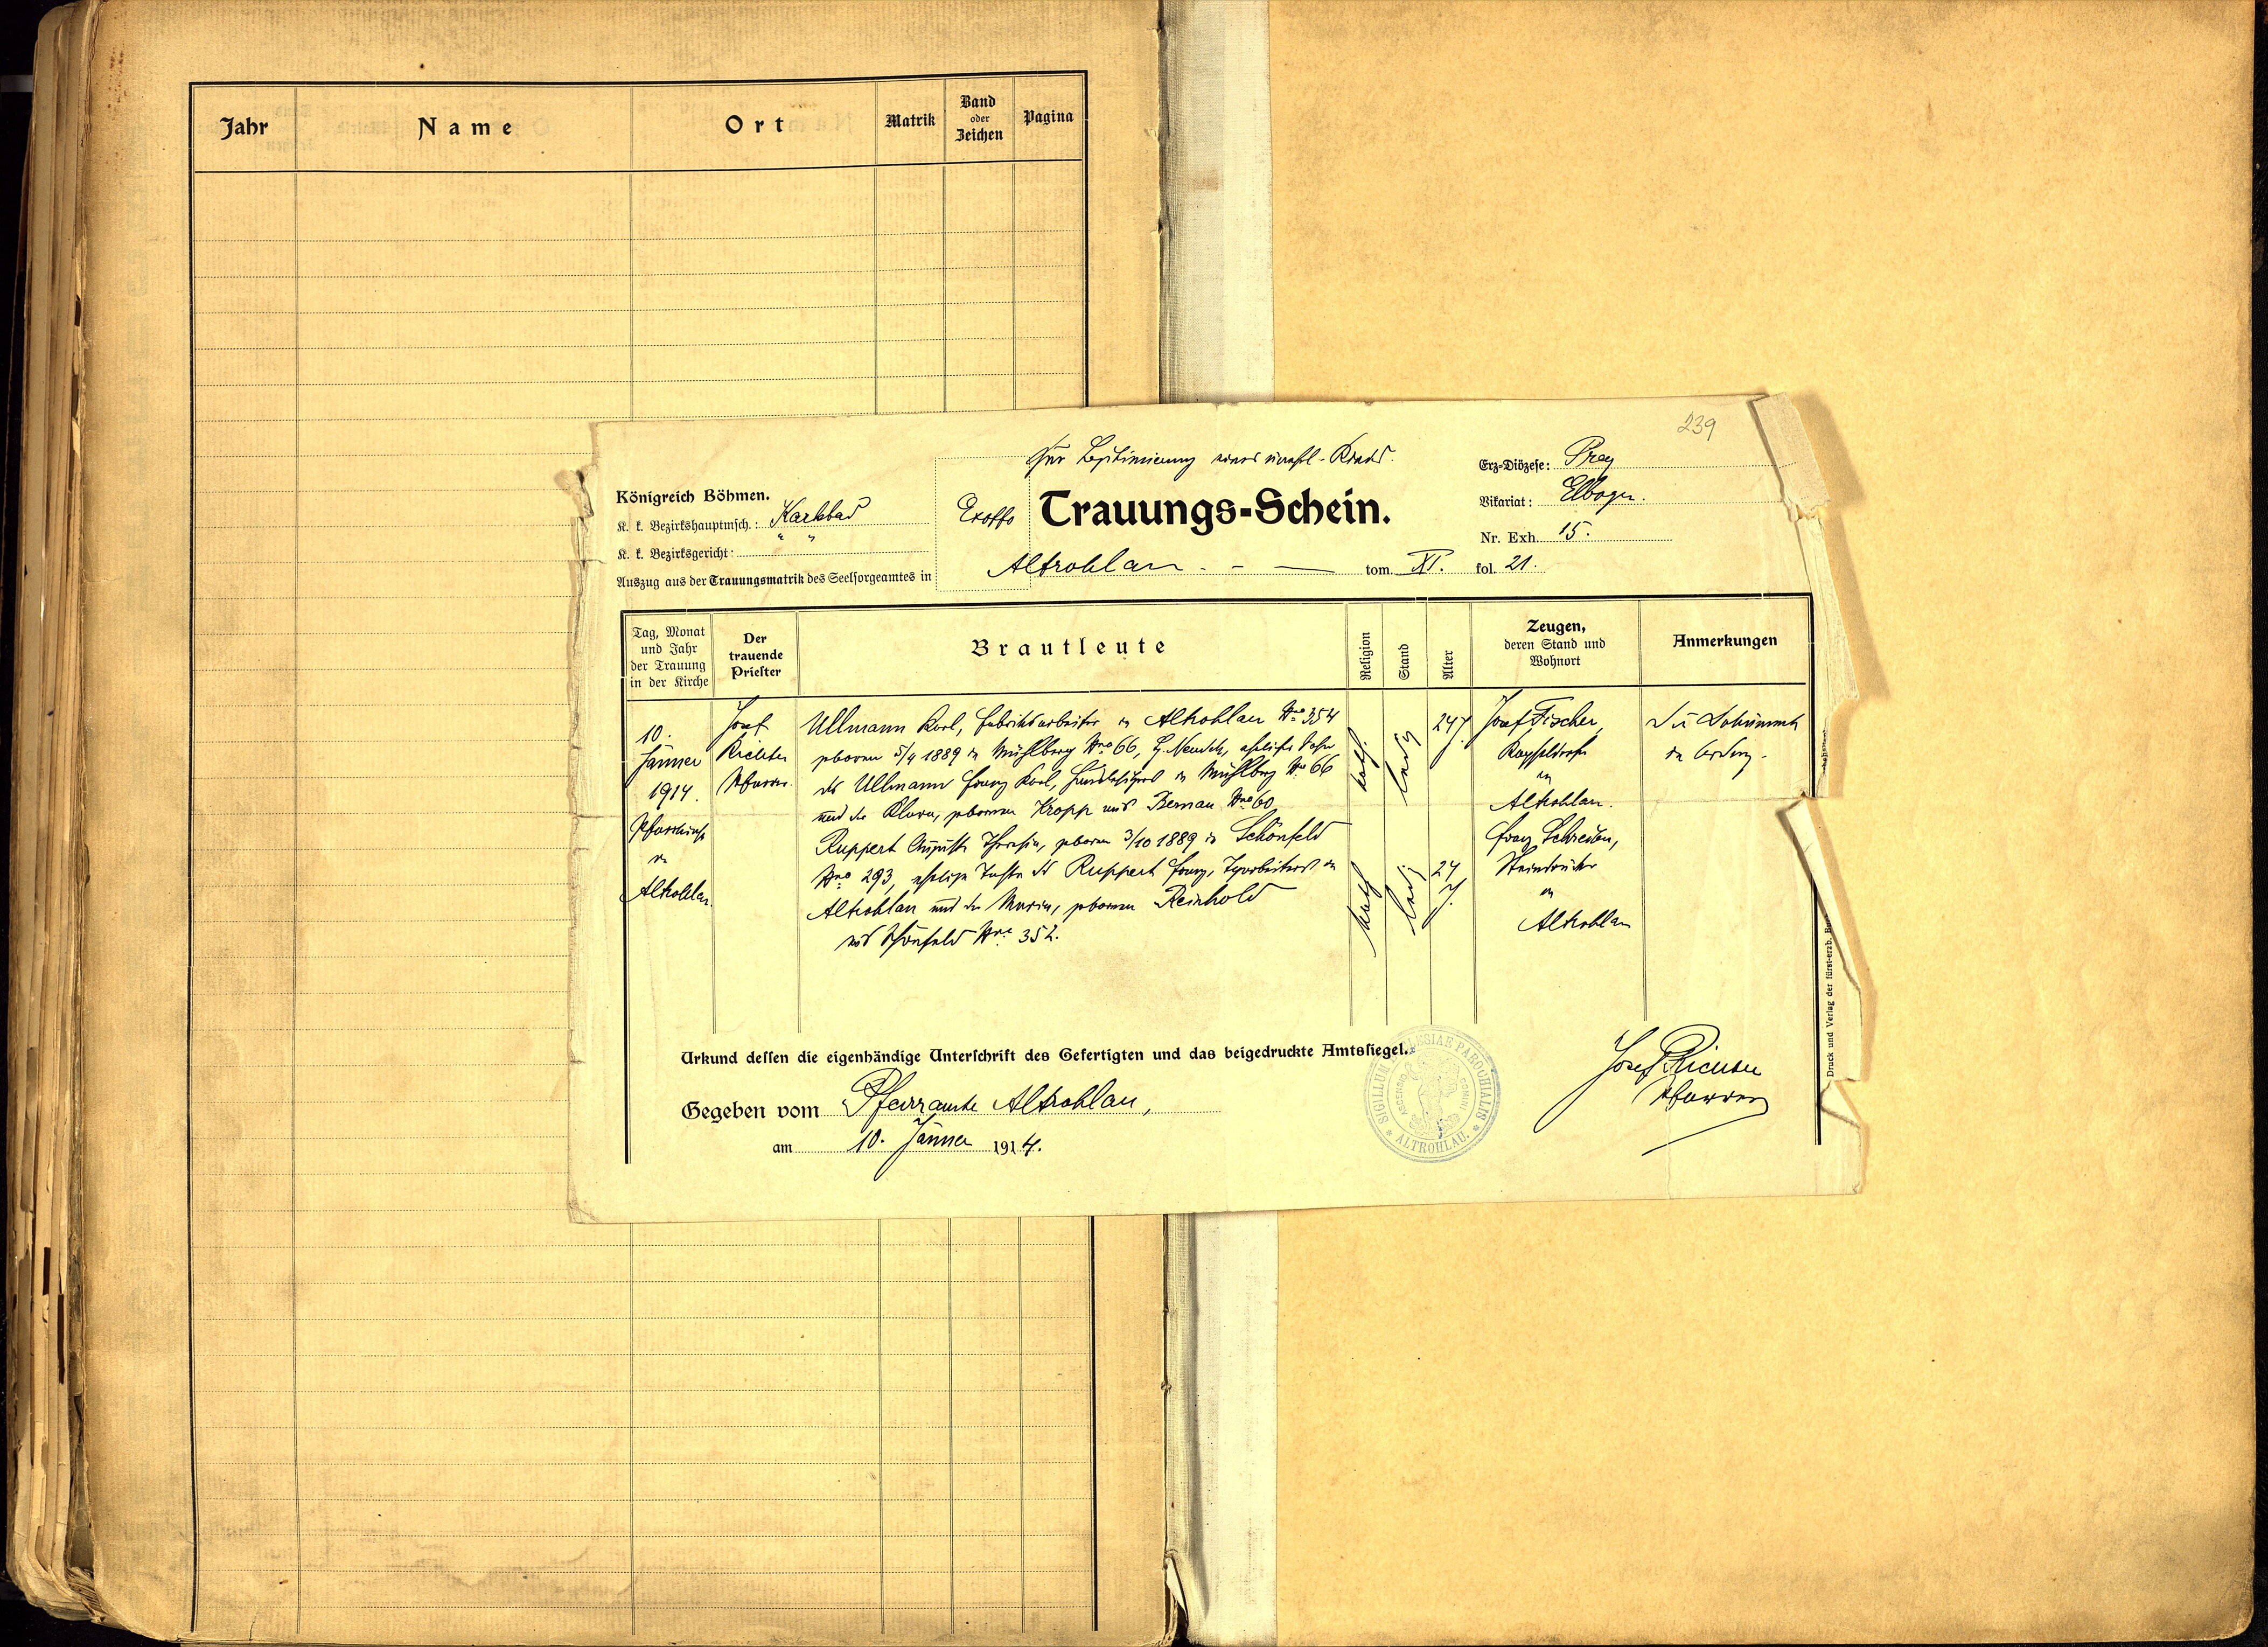 Jahr
Name
Ort
Matrik
Band
oder
Zeichen
Pagina
239
Zur Legitimierung eines unehl. Kindes.
Königreich Böhmen.
K. k. Bezirkshauptmsch.: Karlsbad
K. k. Bezirksgericht: " "
Auszug aus der Trauungsmatrik des Seelsorgeamtes in
Exoffo
Trauungs-Schein.
Altrohlau - — tom. XI. fol. 21.
Erz-Diözese: Prag
Vikariat: Elbogen.
Nr. Exh. 15.
Tag, Monat
und Jahr
der Trauung
in der Kirche
Der
trauende
Priester
Brautleute
Religion
Stand
Alter
Zeugen,
deren Stand und
Wohnort
Anmerkungen
10.
Jänner
1914.
Pfarrkirche
in
Altrohlau.
Josef
Richter
Pfarrer.
Ullmann Karl, Fabriksarbeiter in Altrohlau Nro 354
geboren 5/4 1889 in Mühlberg Nro 66, B. Neudek, ehelicher Sohn
des Ullmann Franz Karl, Hausbesitzers in Mühlberg Nro 66
und der Klara, geborenen Kropp aus Bernau Nro 60
Ruppert Auguste Theresia, geboren 3/10 1889 in Schönfeld
Nro 293, eheliche Tochter des Ruppert Franz, in
Altrohlau und der Maria, geborenen Reinhold
aus Schönfeld Nro 352.
kath.
ledig
24 J.
kath
ledig
24
J.
Josef Fischer,
in
Altrohlau.
Franz Schreiber,
Steindrucker
in
Altrohlau
Die Dokumente
in Ordnung.
Urkund dessen die eigenhändige Unterschrift des Gefertigten und das beigedruckte Amtssiegel.
Gegeben vom Pfarramte Altrohlau,
am 10. Jänner 1914.
SIGILLUM ECCLESIAE PAROCHIALIS
ALTROHLAU.
ASCENSIO DOMINI
Josef Richter
Pfarrer
Druck und Verlag der fürst-erzb.